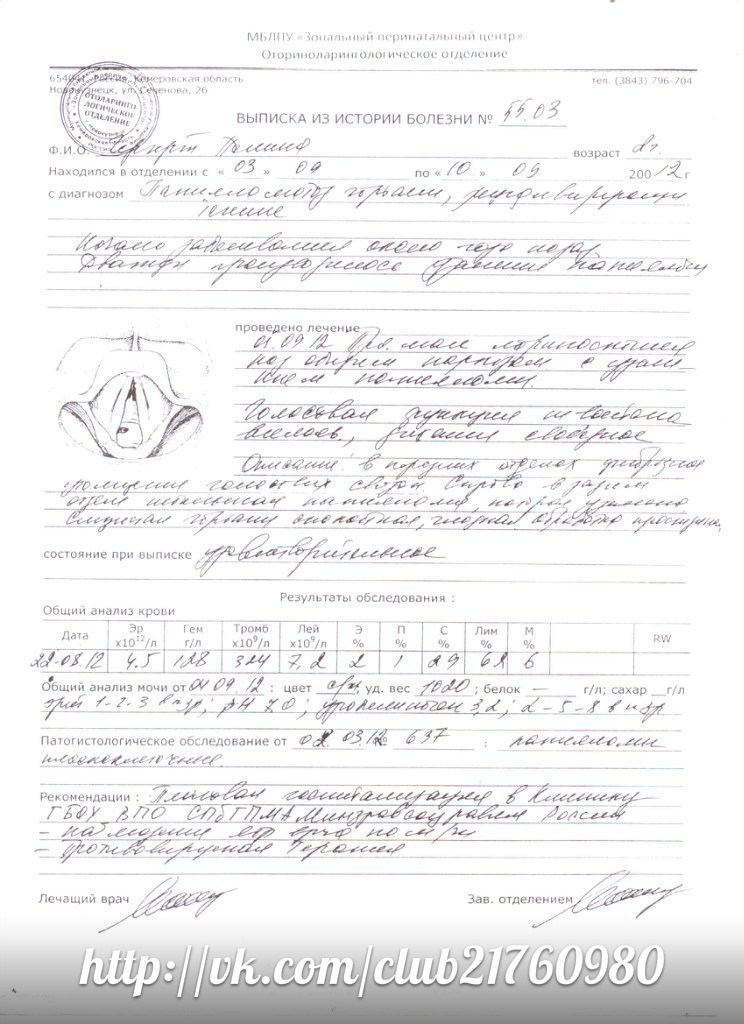 МБЛПУ «Зональный перинатальный центр»
Оториноларингологическое отделение
Россия, Кемеровская область
Новокузнецк, ул. Сеченова, 26
тел. (3843) 796-704
ОТОЛАРИНГО-
ЛОГИЧЕСКОЕ
ОТДЕЛЕНИЕ
ВЫПИСКА ИЗ ИСТОРИИ БОЛЕЗНИ № 55.03
Ф.И.О. Полина возраст 2г.
Находился в отделении с « 03 » 09 по « 10 » 09 20012 г
с диагнозом Папилломатоз гортани, рецидивирующее
течение
Начало заболевания около года назад
Дважды производилось удаление папиллом
проведено лечение
09 12 Пр. мол ларингоскопия
под общим наркозом с удале-
нием папилломы
Голосовая функция не восстано
вилась, дыхание свободное
Описание: в передних отделах фиброзное
утолщение голосовых связок Справа в заднем
отделе папиллома, удалена
Слизистая гортани спокойная, гладкая
состояние при выписке удовлетворительное
Результаты обследования :
Общий анализ крови
Дата Эр х10¹²/л Гем г/л Тромб х10⁹/л Лей х10⁹/л Э % П % С % Лим % М % RW
22.08.12 4.5 128 324 7,2 2 1 29 62 6
Общий анализ мочи от 04 09 12 : цвет с/ж, уд. вес 1020 ; белок — г/л; сахар г/л
1-2-3 в п/зр; рН 7,0 ; уробилиноген 3,2 ; L - 5-8 в п/зр
Патогистологическое обследование от 03.12 № 637 : папиллома
плоскоклеточная
Рекомендации : Плановая госпитализация в Клинику
ГБОУ ВПО СПбГПМА Минздравсоцразвития России
– наблюдение лор врача по м/ж
– противовирусная терапия
Лечащий врач
Зав. отделением
http://vk.com/club21760980